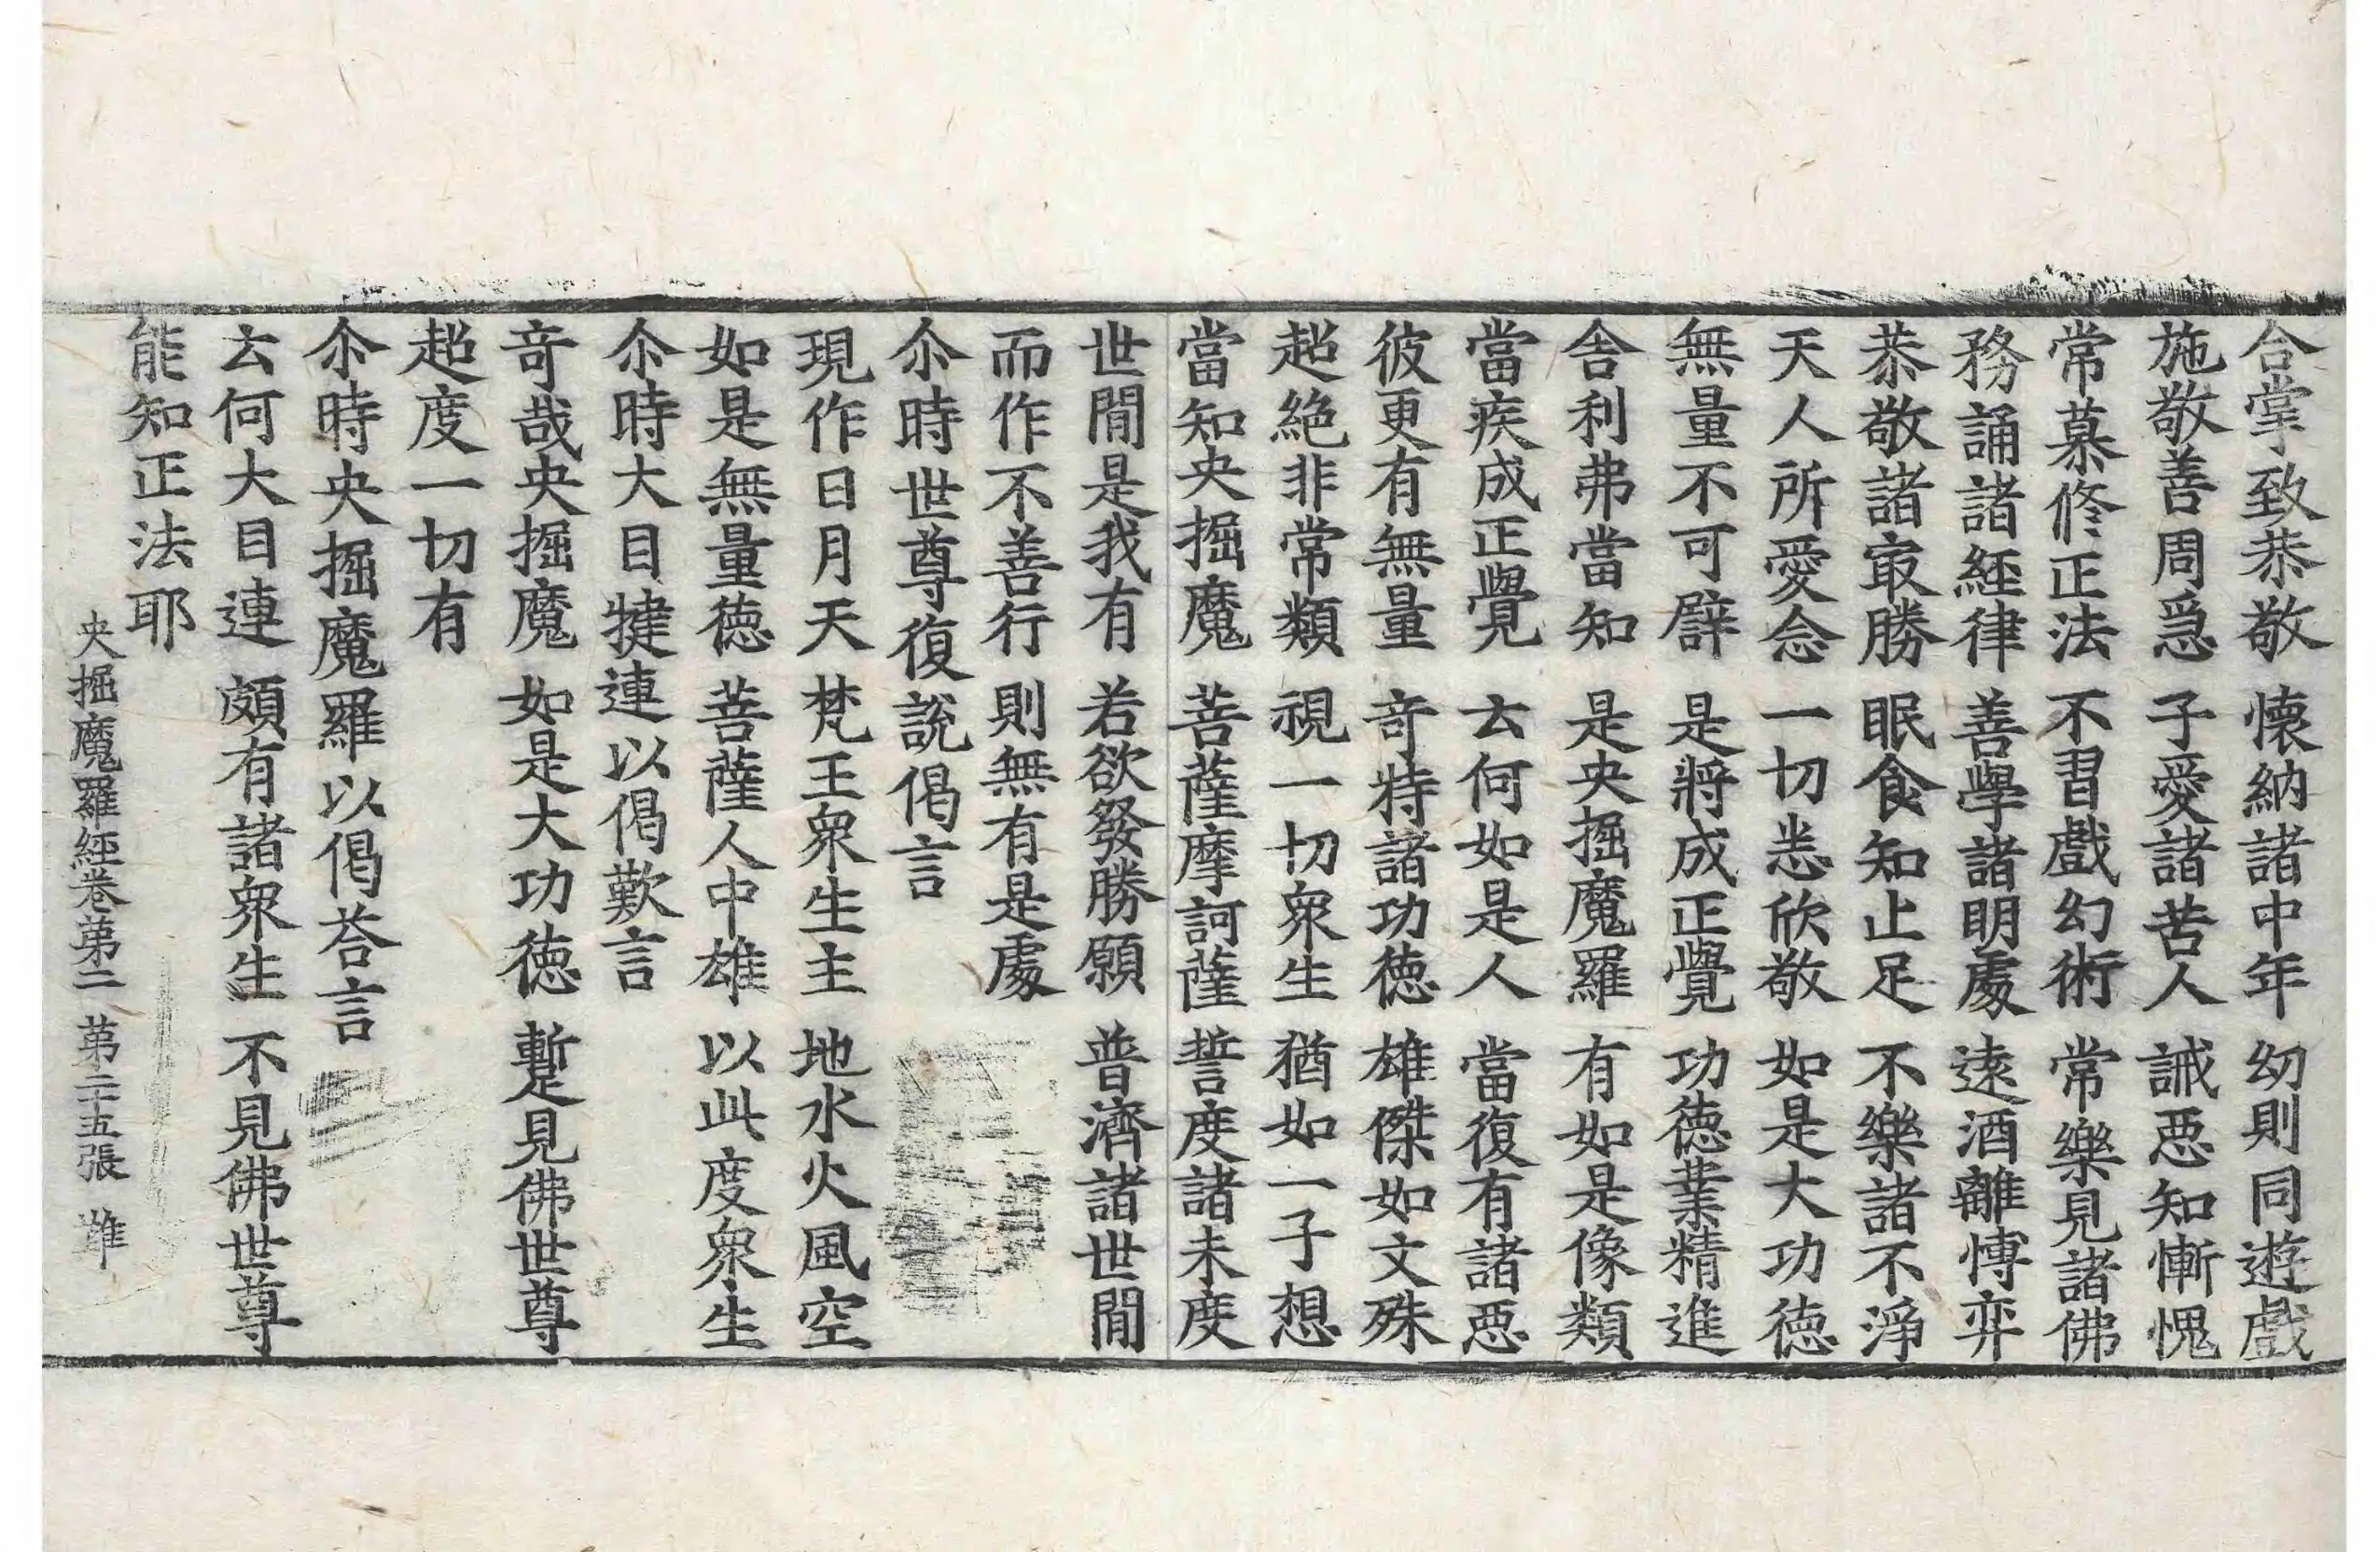 合掌致恭敬　懷納諸中年　幼則同遊戲
施敬善周急　子愛諸苦人　誡惡知慚愧
常慕修正法　不習戲幻術　常樂見諸佛
務誦諸經律　善學諸明處　遠酒離愽弈
恭敬諸㝡勝　眠食知止足　不樂諸不淨
天人所愛念　一切悉欣敬　如是大功德
無量不可譬　是將成正覺　功德業精進
舎利弗當知　是央掘魔羅　有如是像類
當疾成正覺　云何如是人　當復有諸惡
彼更有無量　竒特諸功德　雄傑如文殊
超絕非常類　視一切衆生　猶如一子想
當知央掘魔　菩薩摩訶薩　誓度諸未度
世閒是我有　若欲發勝願　普濟諸世閒
而作不善行　則無有是處
尒時世尊復說偈言
現作日月天　梵王衆生主　地水火風空
如是無量德　菩薩人中雄　以此度衆生
尒時大目揵連以偈歎言
竒哉央掘魔　如是大功德　暫見佛世尊
超度一切有
尒時央掘魔羅以偈荅言
云何大目連　頗有諸衆生　不見佛世尊
能知正法耶
央掘魔羅経卷第二　第二十五張　雄